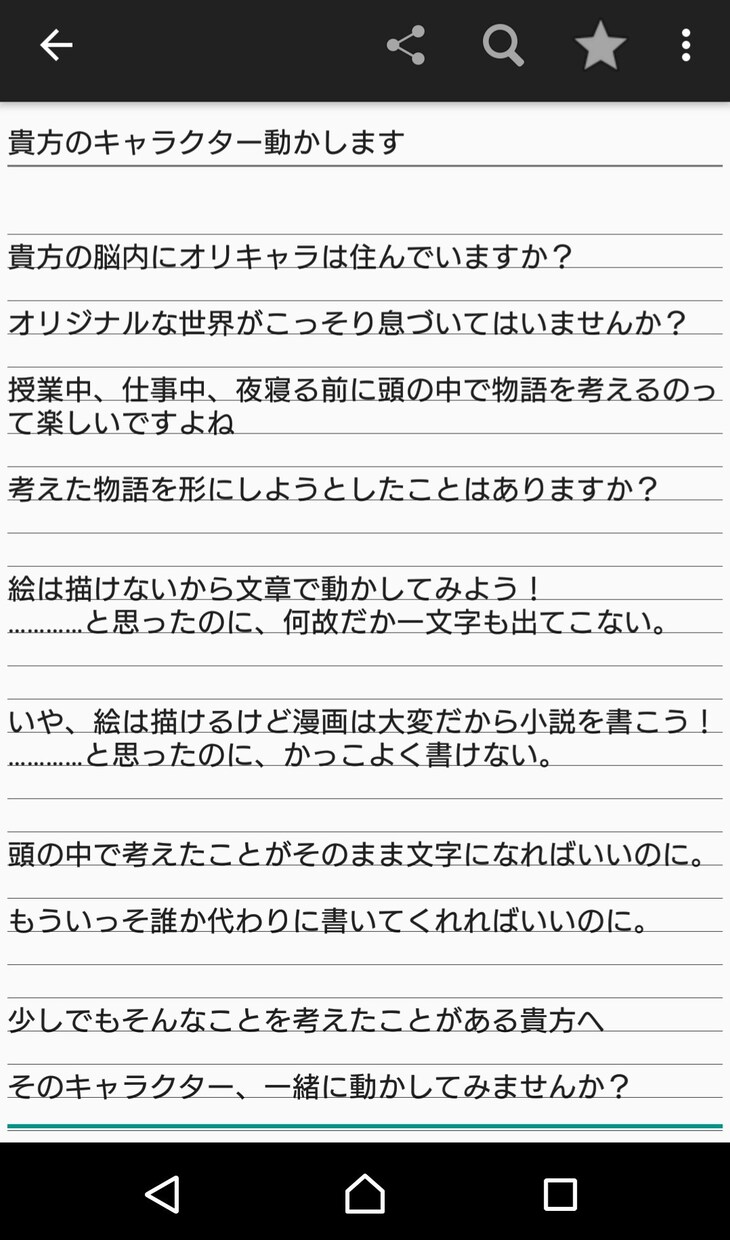 貴方のキャラクター動かします
貴方の脳内にオリキャラは住んでいますか？
オリジナルな世界がこっそり息づいてはいませんか？
授業中、仕事中、夜寝る前に頭の中で物語を考えるのっ
て楽しいですよね
考えた物語を形にしようとしたことはありますか？
絵は描けないから文章で動かしてみよう！
…………と思ったのに、何故だか一文字も出てこない。
いや、絵は描けるけど漫画は大変だから小説を書こう！
…………と思ったのに、かっこよく書けない。
頭の中で考えたことがそのまま文字になればいいのに。
もういっそ誰か代わりに書いてくれればいいのに。
少しでもそんなことを考えたことがある貴方へ
そのキャラクター、一緒に動かしてみませんか？